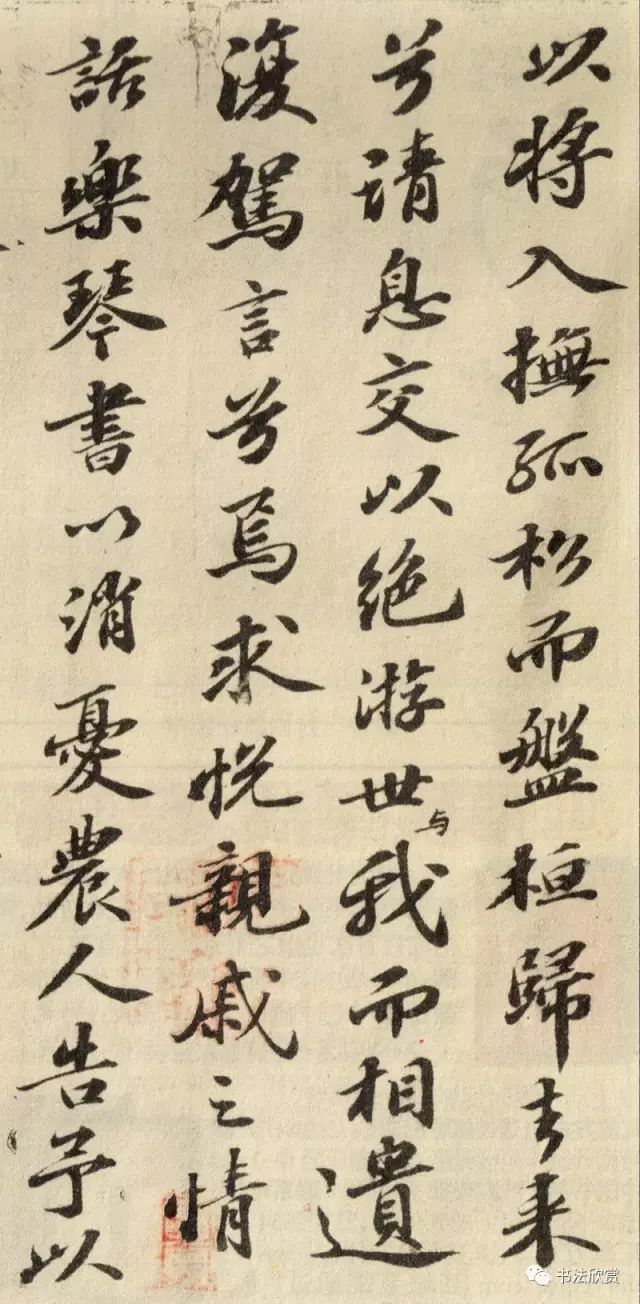 以将入撫孤松而盤桓歸去来
兮请息交以绝游世与我而相遺
復駕言兮焉求悦親戚之情
話樂琴書以消憂農人告予以
书法欣赏